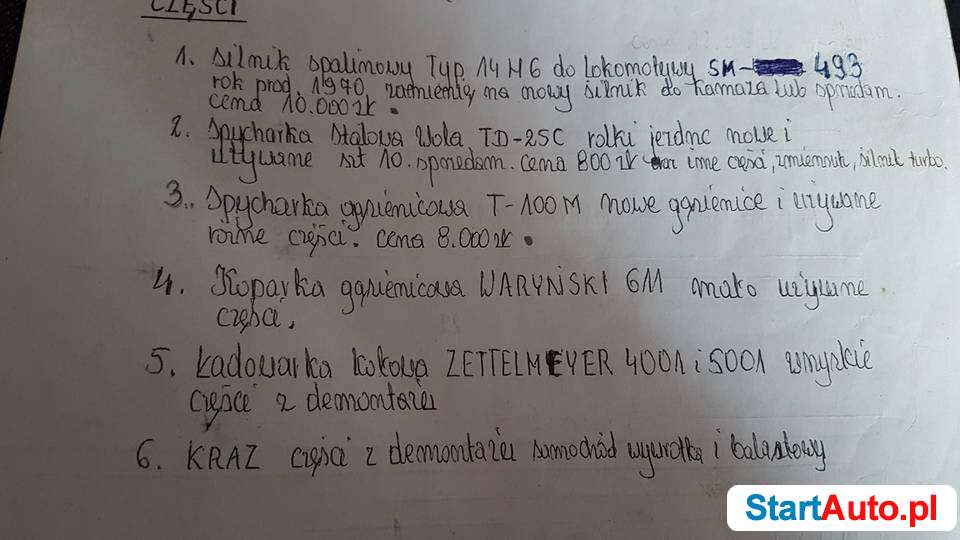 CZĘŚCI
1. Silnik spalinowy Typ 14H6 do Lokomotywy SM- 493
rok prod. 1970, zamienię na nowy silnik do Kamaza lub sprzedam.
cena 10.000zł.
2. Spycharka Stalowa Wola TD-25C rolki jezdne nowe i
używane szt 10. sprzedam. cena 800 zł inne części, zmiennik, silnik turbo.
3. Spycharka gąsienicowa T-100M nowe gąsienice i używane
różne części. cena 8.000zł.
4. Koparka gąsienicowa WARYŃSKI 611 mało używane
części.
5. Ładowarka kołowa ZETTELMEYER 4001 i 5001 wszystkie
części z demontażu
6. KRAZ części z demontażu samochód wywrotka i balastowy
StartAuto.pl